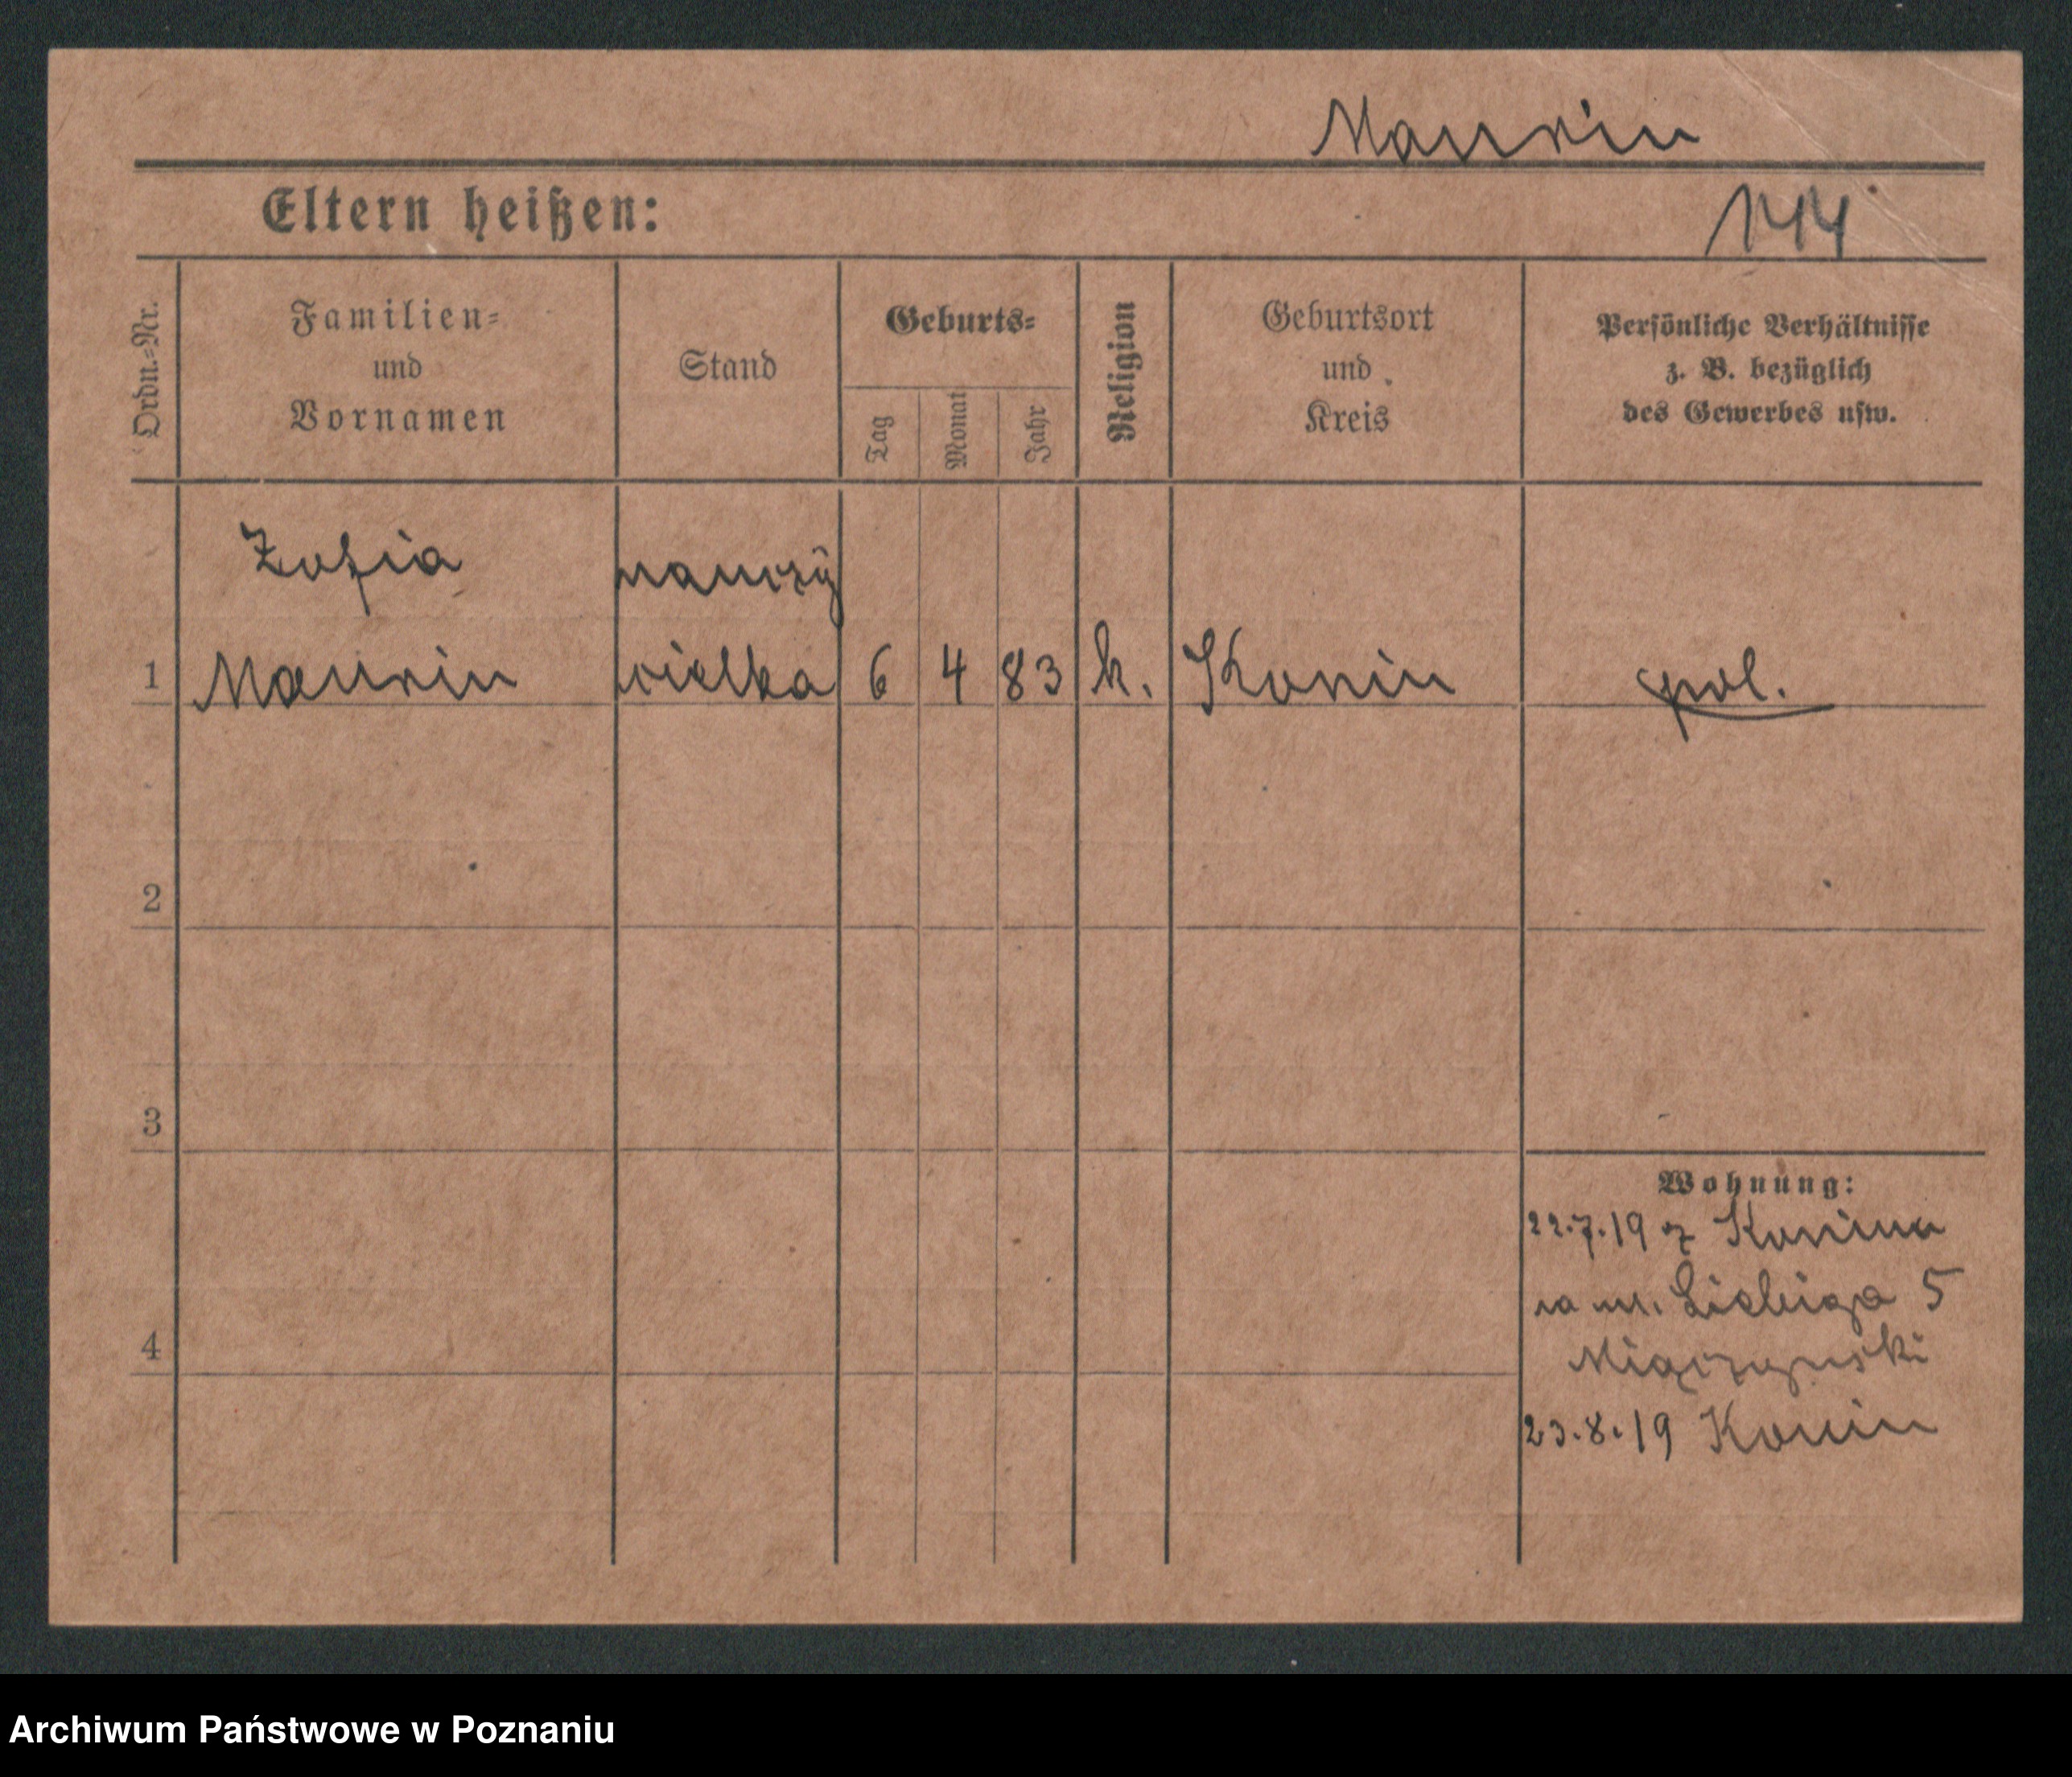 Maurin
Eltern heißen:
144
Ordn.=Nr.
Familien=
und
Vornamen
Stand
Geburts=
Tag
Monat
Jahr
Religion
Geburtsort
und
Kreis
Persönliche Verhältnisse
z. B. bezüglich
des Gewerbes usw.
Zofia nauczy
1 Maurin cielka 6 4 83 k. Konin pol.
2
3
4
Wohnung:
22.7.19 z Konina
na ul. Liebiga 5
Miączyński
23.8.19 Konin
Archiwum Państwowe w Poznaniu